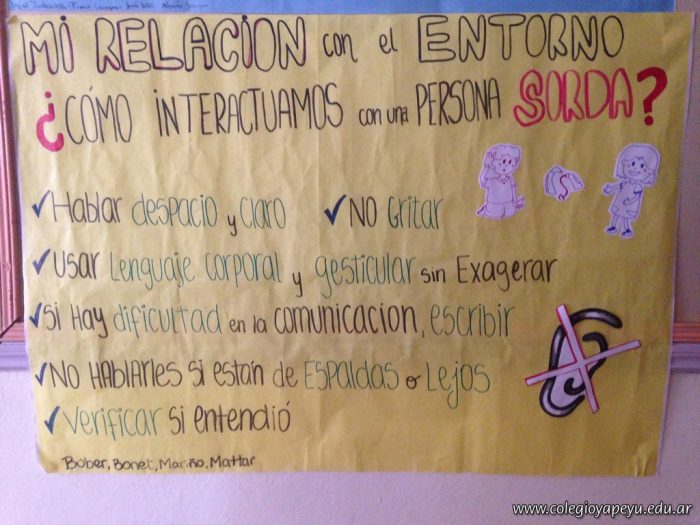 MI RELACION con el ENTORNO
¿CÓMO INTERACTUAMOS con una PERSONA SORDA?
✓Hablar despacio y claro ✓NO Gritar
✓Usar Lenguaje corporal y gesticular sin Exagerar
✓Si Hay dificultad en la comunicacion, escribir
✓NO HABLArles si están de Espaldas o Lejos
✓Verificar si entendió
Bober, Bonet, Mariño, Mattar
www.colegioyapeyu.edu.ar